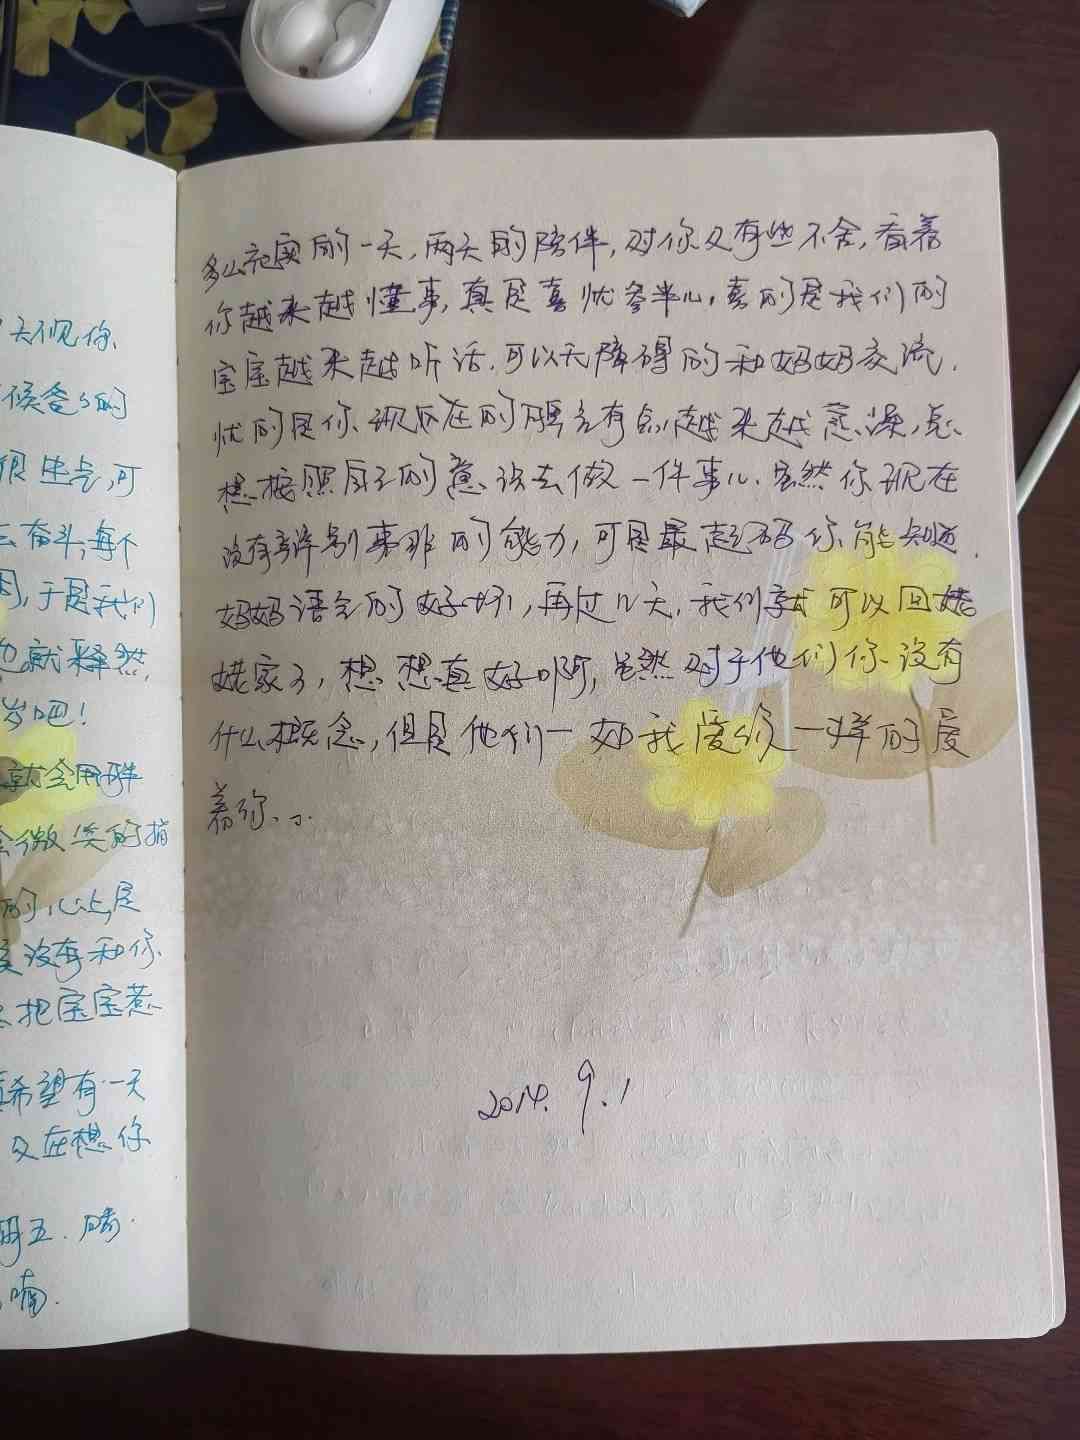 天不见你、
候爸爸的
很生气,可
去奋斗,每个
困,于是我们
也就释然
岁吧!
就会用胖
会微笑的指
的,心上是
没有和你
把宝宝惹
希望有一天
又在想你
周五.晴.
喃.
多么充实的一天,两天的陪伴,对你又有些不舍,看着
你越来越懂事,真是喜忧参半儿,喜的是我们的
宝宝越来越听话,可以无障碍的和妈妈交流,
忧的是你、现在的脾气有点越来越急躁,总
想按照自己的意识去做一件事儿.虽然你现在
没有辨别事非的能力,可是最起码你能知道
妈妈语气的好坏,再过几天,我们就可以回姥
姥家了,想想真好啊,虽然对于他们你没有
什么概念,但是他们一如我爱你一样的爱
着你、、
2014.9.1